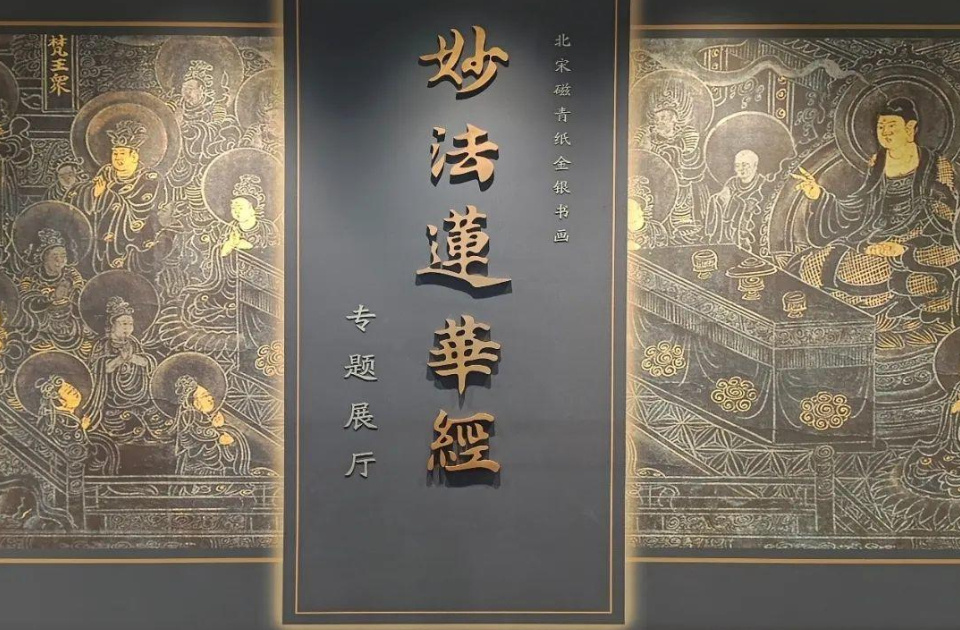 北宋磁青纸金银书画
妙法蓮華經
专题展厅
梵王衆